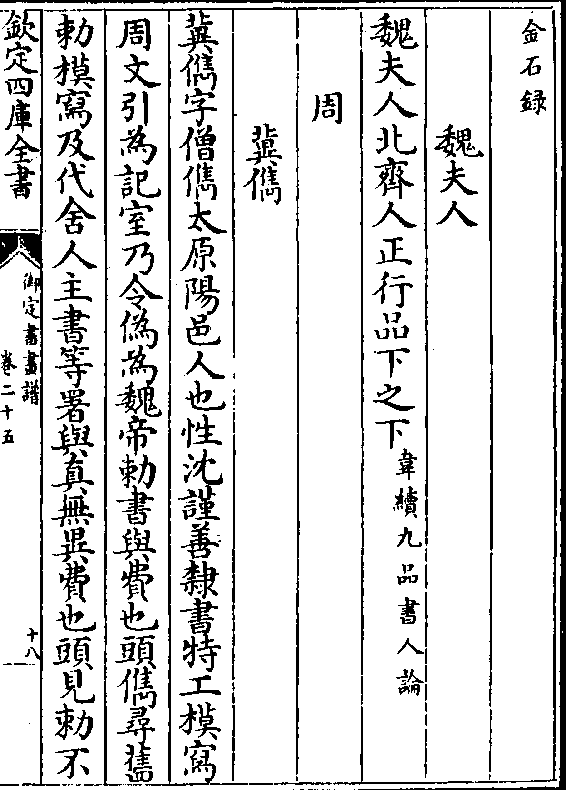 金石録
魏夫人
魏夫人北齊人正行品下之下韋續九品書人論
周
冀儁
冀儁字僧儁太原陽邑人也性沈謹善隸書特工模寫
周文引為記室乃令偽為魏帝勅書與費也頭儁尋舊
勅模寫及代舍人主書等署與真無異費也頭見勅不
欽定四庫全書
御定書畫譜
卷二十五
十八